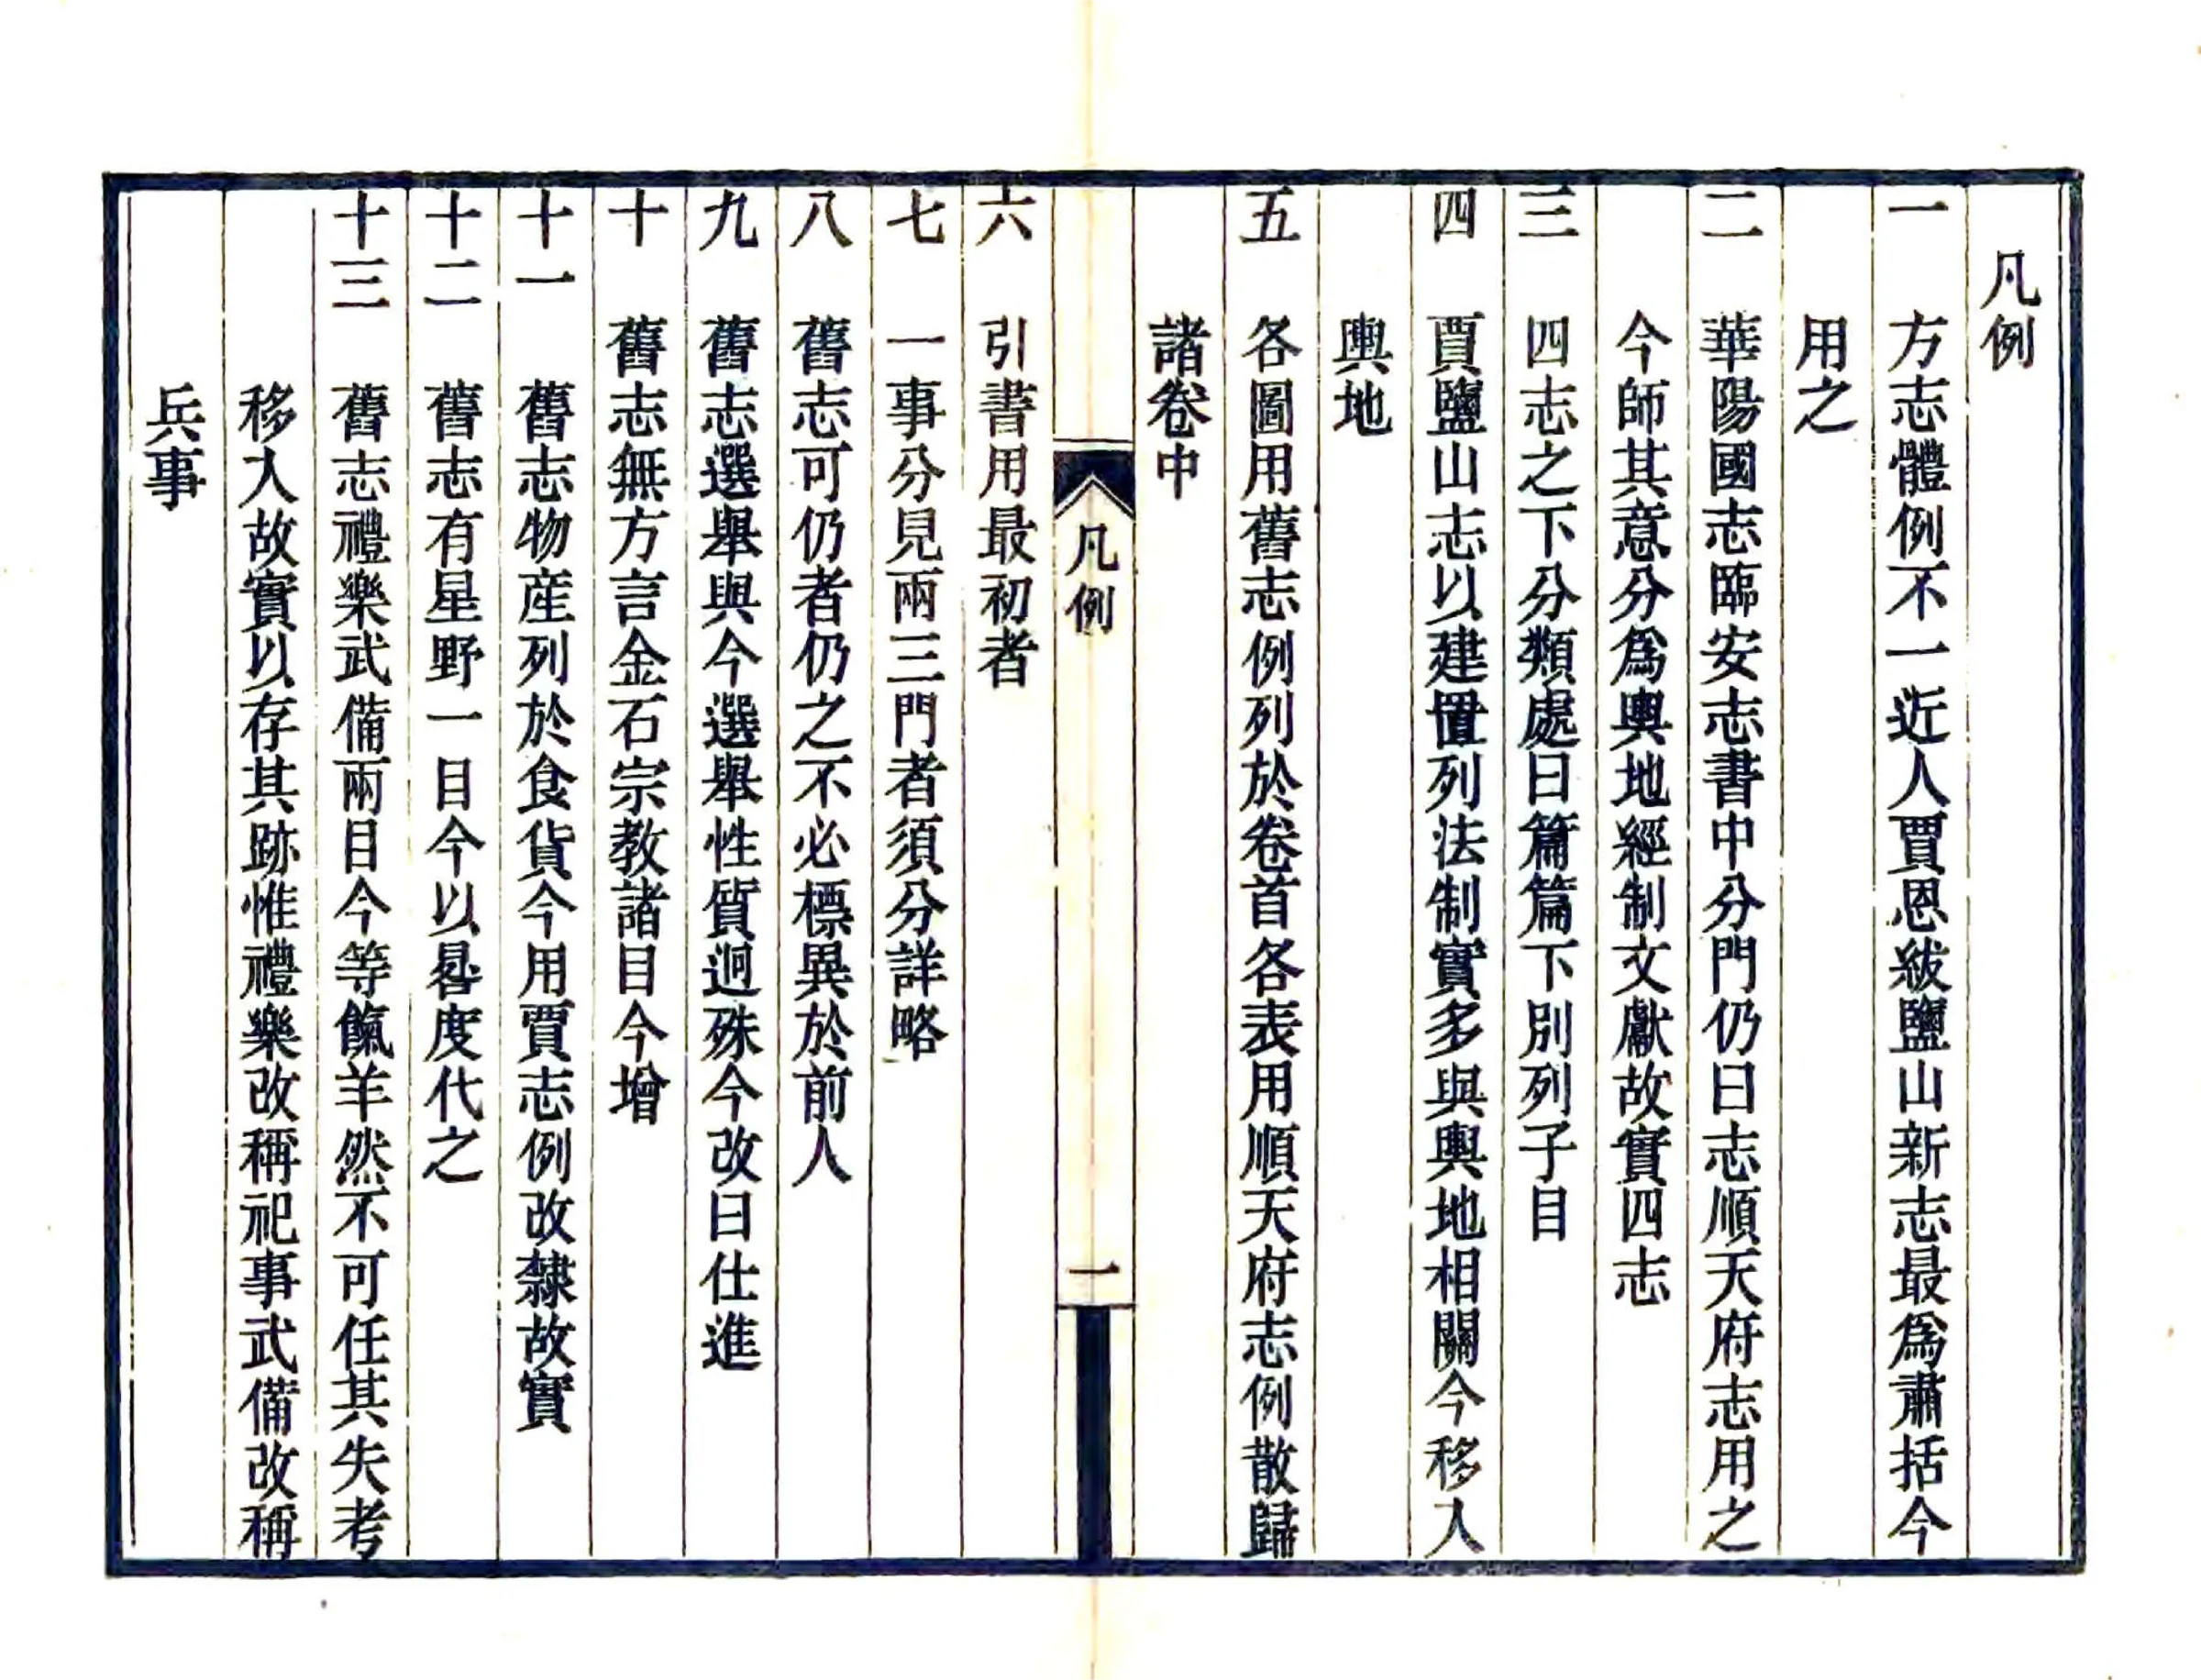 凡例
一 方志體例不一近人賈恩紱鹽山新志最爲肅括今
用之
二 華陽國志臨安志書中分門仍曰志順天府志用之
今師其意分爲輿地經制文獻故實四志
三 四志之下分類處曰篇篇下別列子目
四 賈鹽山志以建置列法制實多與輿地相關今移入
輿地
五 各圖用舊志例列於卷首各表用順天府志例散歸
諸卷中
凡例
一
六 引書用最初者
七 一事分見兩三門者須分詳略
八 舊志可仍者仍之不必標異於前人
九 舊志選舉與今選舉性質迥殊今改曰仕進
十 舊志無方言金石宗教諸目今增
十一 舊志物産列於食貨今用賈志例改隸故實
十二 舊志有星野一目今以晷度代之
十三 舊志禮樂武備兩目今等餼羊然不可任其失考
移入故實以存其跡惟禮樂改稱祀事武備改稱
兵事